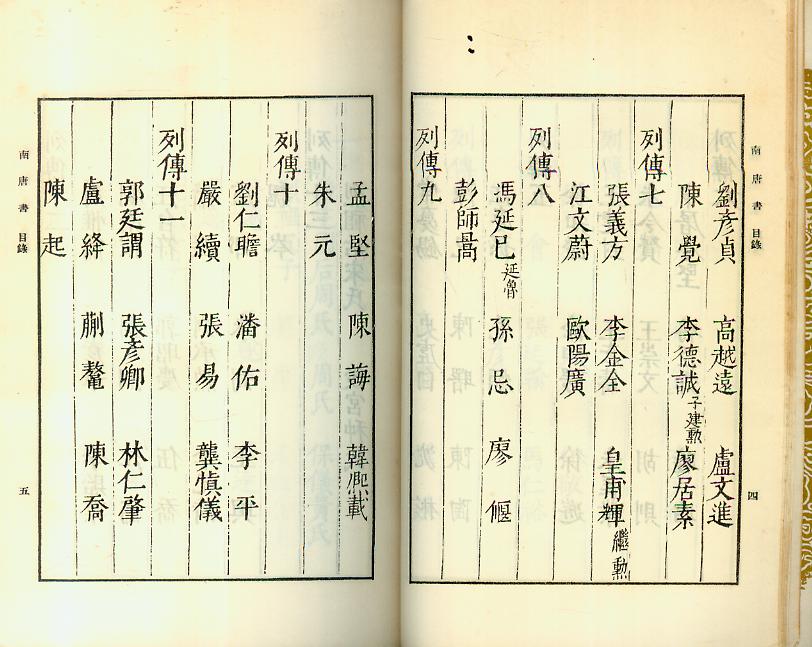 南唐書 目錄 四
劉彥貞 高越遠 盧文進
陳覺 李德誠子建勲 廖居素
列傳七
張義方 李金全 皇甫輝繼勲
江文蔚 歐陽廣
列傳八
馮延巳延魯 孫忌 廖偃
彭師暠
列傳九
孟堅 陳誨 韓熙載
朱元
列傳十
劉仁瞻 潘佑 李平
嚴續 張易 龔慎儀
列傳十一
郭廷謂 張彥卿 林仁肇
盧絳 蒯鼇 陳喬
陳起
南唐書 目錄 五